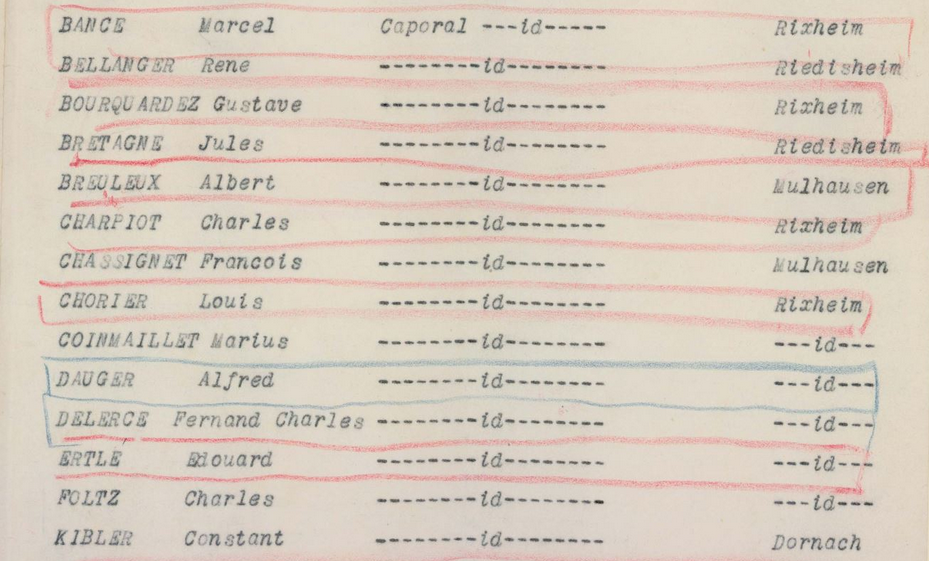 BANCE Marcel Caporal ---id----- Rixheim
BELLANGER Rene --------id-------- Riedisheim
BOURQUARDEZ Gustave --------id-------- Rixheim
BRETAGNE Jules --------id-------- Riedisheim
BREULEUX Albert --------id-------- Mulhausen
CHARPIOT Charles --------id-------- Rixheim
CHASSIGNET Francois --------id-------- Mulhausen
CHORIER Louis --------id-------- Rixheim
COINMAILLET Marius --------id-------- ---id---
DAUGER Alfred --------id-------- ---id---
DELERCE Fernand Charles --------id-------- ---id---
ERTLE Edouard --------id-------- ---id---
FOLTZ Charles --------id-------- ---id---
KIBLER Constant --------id-------- Dornach